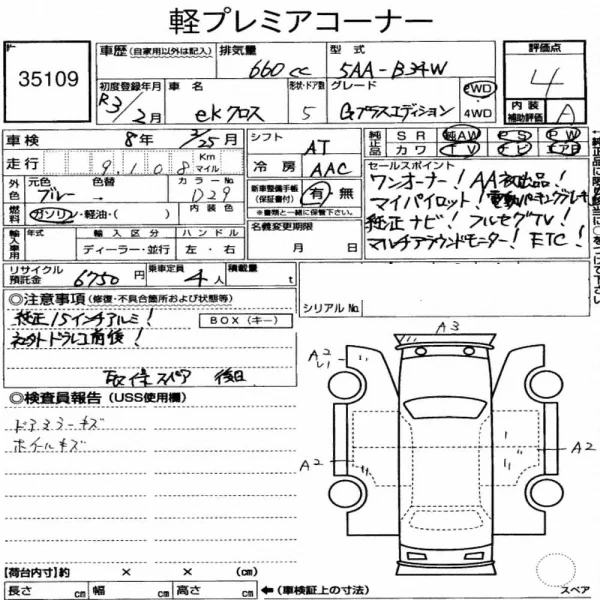 軽プレミアコーナー
35109
車歴 (自家用以外は記入)
排気量
660 cc
型式
5AA-B34W
評価点
4
内装
補助評価
A
初度登録年月
R3/2月
車名
eKクロス
形状・ドア数
5
グレード
Gプラスエディション
2WD
4WD
車検
8年 2/25月
シフト
AT
純正品
SR
純AW
PS
PW
カワ
TV
ナビ
エアB
走行
9108
Km
マイル
冷房
AAC
セールスポイント
ワンオーナー! AA初出品!
マイパイロット! 電動パーキングブレーキ
純正ナビ! フルセグTV!
マルチアラウンドモニター! ETC!
外色
元色
ブルー
色替
カラーNo.
D29
新車整備手帳
(保証書付)
有・無
※書類と一緒に保管下さい。
燃料
ガソリン・軽油・( )
内装色
名義変更期限
月 日
輸入車用
年式
輸入区分
ハンドル
ディーラー・並行
左・右
リサイクル
預託金
6750円
乗車定員
4人
積載量
t
シリアルNo.
◎注意事項 (修復・不具合箇所および状態等)
純正15インチアルミ!
BOX(キー)
社外ドラレコ前後!
取保 スペア 後日
◎検査員報告 (USS使用欄)
ドアミラーキズ
ホイールキズ
A3
A2
A2
A2
【荷台内寸】約 × × (cm)
長さ cm 幅 cm 高さ cm
←(車検証上の寸法)
スペア